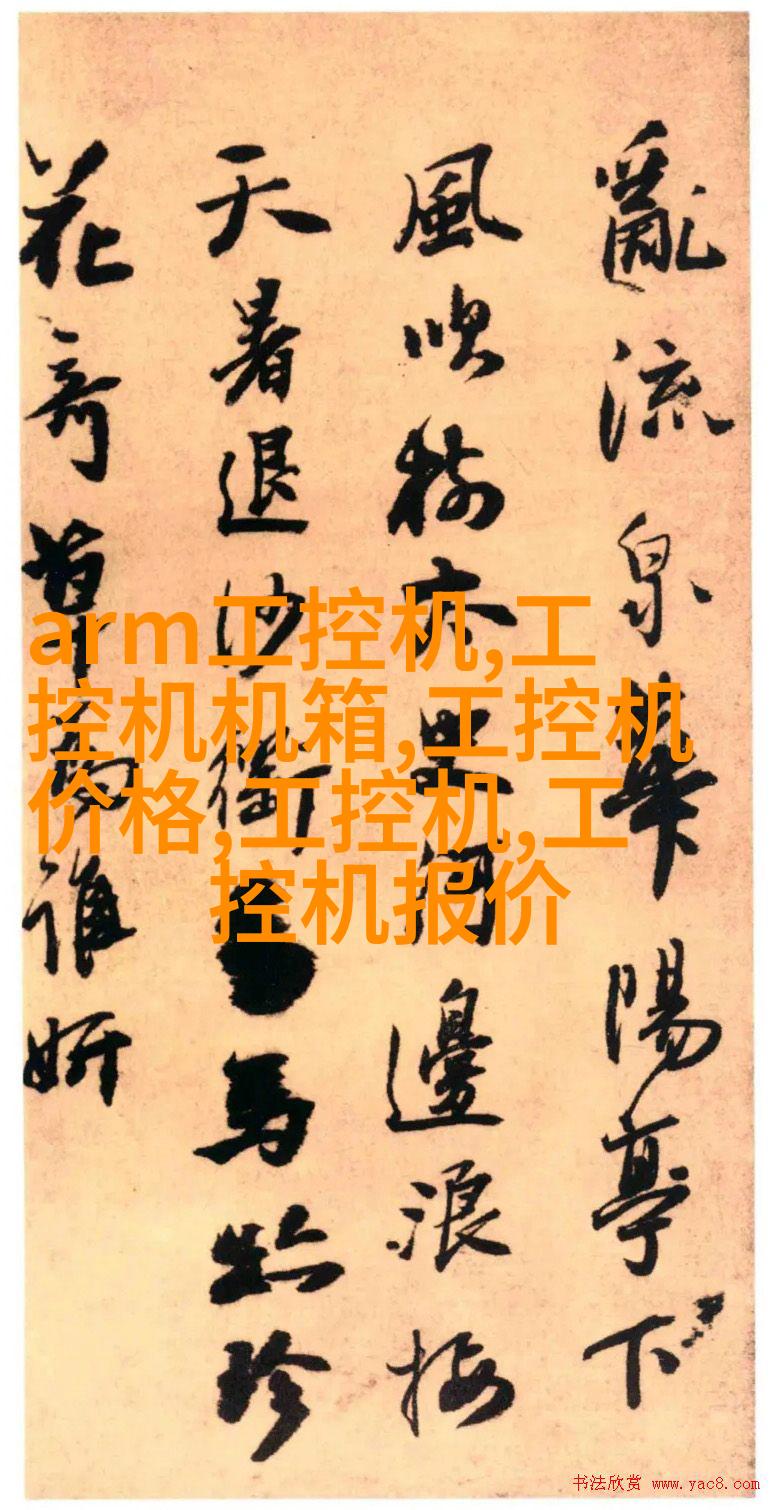 亂流泉華陽亭下
風吹邊浪接
天暑退沙馬珍
花奇草誰妍
arm工控机,工
控机机箱,工控机
价格,工控机,工
控机报价
书法欣赏 www.yac8.com